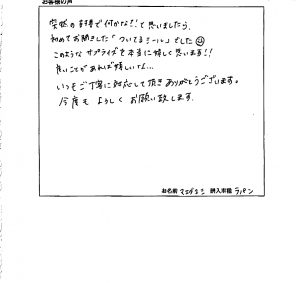 お客様の声
突然のお手紙で何かな!!と思いましたら、
初めてお聞きした「ついてるシール」でした
このようなサプライズを本当に嬉しく思います!!
良いことがあれば嬉しいな…
いつもご丁寧に対応して頂きありがとうございます。
今度も よろしく お願い致します。
お名前 購入車種 ラパン